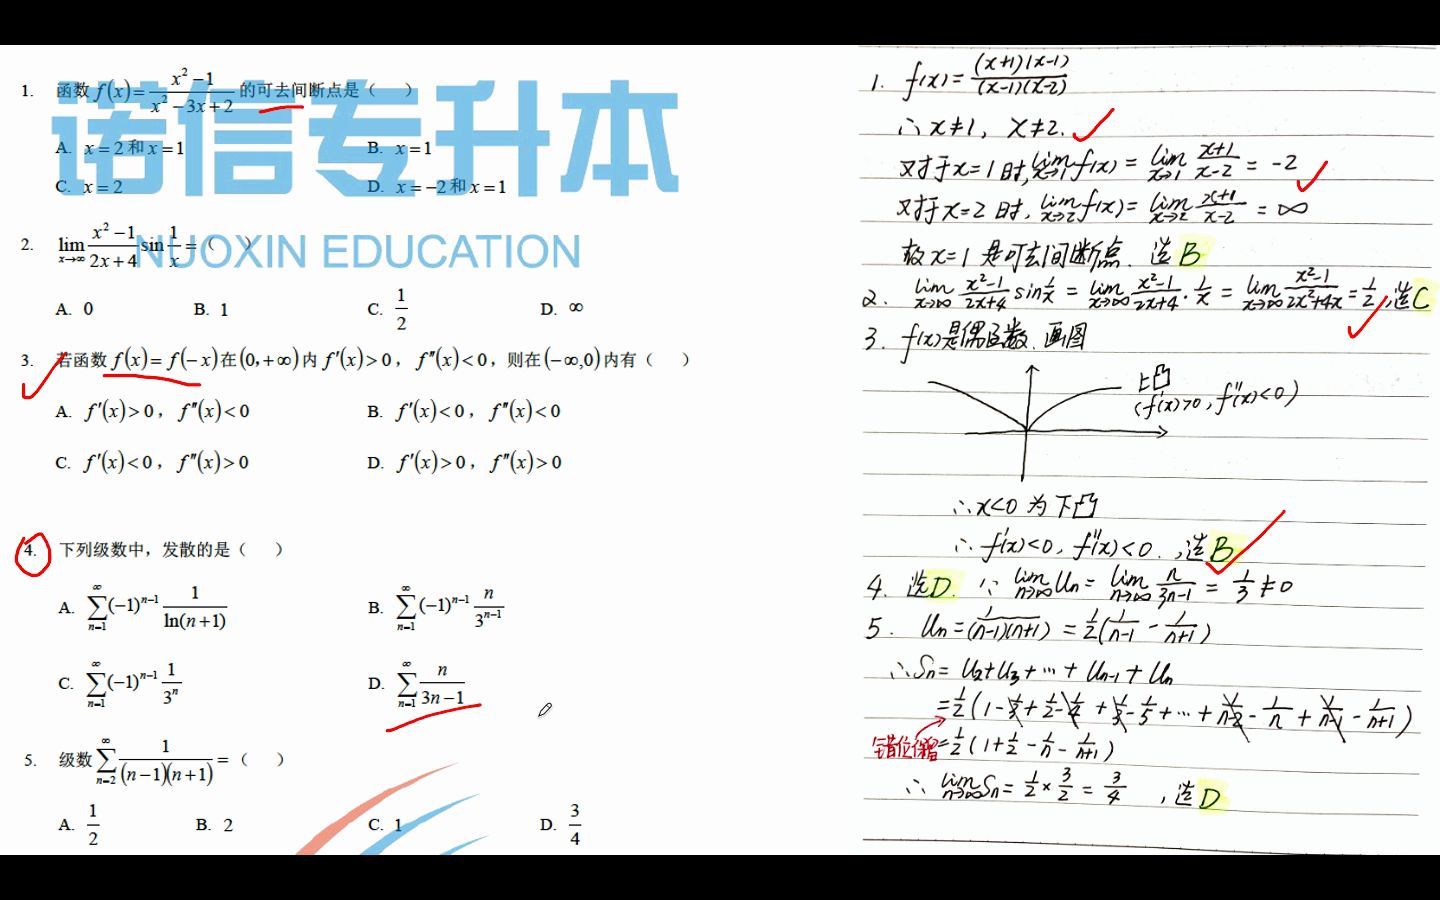 1. 函数 f(x)=\frac{x^2-1}{x^2-3x+2} 的可去间断点是（ ）
A. x=2和x=1
B. x=1
C. x=2
D. x=-2和x=1
诺信专升本
NUOXIN EDUCATION
2. \lim_{x→∞}\frac{x^2-1}{2x+4}\sin\frac{1}{x}=（ ）
A. 0
B. 1
C. \frac{1}{2}
D. ∞
3. 若函数 f(x)=f(-x)在(0,+∞)内 f'(x)>0，f''(x)<0，则在(-∞,0)内有（ ）
A. f'(x)>0，f''(x)<0
B. f'(x)<0，f''(x)<0
C. f'(x)<0，f''(x)>0
D. f'(x)>0，f''(x)>0
4. 下列级数中，发散的是（ ）
A. \sum_{n=1}^{∞}(-1)^{n-1}\frac{1}{\ln(n+1)}
B. \sum_{n=1}^{∞}(-1)^{n-1}\frac{n}{3^{n-1}}
C. \sum_{n=1}^{∞}(-1)^{n-1}\frac{1}{3^n}
D. \sum_{n=1}^{∞}\frac{n}{3n-1}
5. 级数\sum_{n=2}^{∞}\frac{1}{(n-1)(n+1)}=（ ）
A. \frac{1}{2}
B. 2
C. 1
D. \frac{3}{4}
1. f(x)=\frac{(x+1)(x-1)}{(x-1)(x-2)}
∴ x≠1, x≠2.
又对于x=1时,\lim_{x→1}f(x)=\lim_{x→1}\frac{x+1}{x-2}=-2
又对于x=2时,\lim_{x→2}f(x)=\lim_{x→2}\frac{x+1}{x-2}=∞
故x=1是可去间断点. 选B
2. \lim_{x→∞}\frac{x^2-1}{2x+4}\sin\frac{1}{x}=\lim_{x→∞}\frac{x^2-1}{2x+4}·\frac{1}{x}=\lim_{x→∞}\frac{x^2-1}{2x^2+4x}=\frac{1}{2},选C
3. f(x)是偶函数.画图
上凸
(f'(x)>0, f''(x)<0)
∴x<0为下凸
∴f'(x)<0, f''(x)<0.,选B
4. 选D. ∵\lim_{n→∞}Un=\lim_{n→∞}\frac{n}{3n-1}=\frac{1}{3}≠0
5. Un=\frac{1}{(n-1)(n+1)}=\frac{1}{2}(\frac{1}{n-1}-\frac{1}{n+1})
∴Sn=U2+U3+…+Un-1+Un
=\frac{1}{2}(1-\frac{1}{3}+\frac{1}{2}-\frac{1}{4}+\frac{1}{3}-\frac{1}{5}+…+\frac{1}{n-2}-\frac{1}{n}+\frac{1}{n-1}-\frac{1}{n+1})
错位保留=\frac{1}{2}(1+\frac{1}{2}-\frac{1}{n}-\frac{1}{n+1})
∴\lim_{n→∞}Sn=\frac{1}{2}×\frac{3}{2}=\frac{3}{4},选D